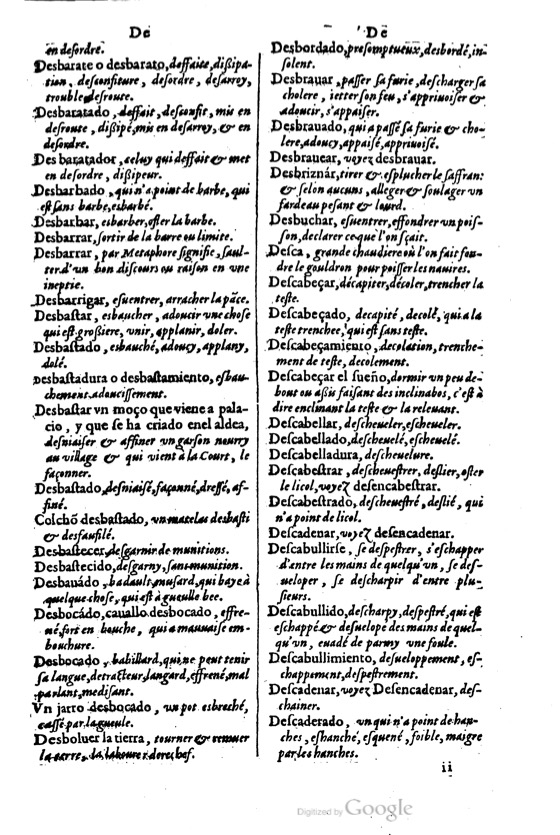 De
en desordre.
Desbarate o desbarato, deffaite, dißipa-
tion, desconfiture, desordre, desarroy,
trouble desroute.
Desbaratado, deffait, desconfit, mis en
desroute, dißipé, mis en desarroy, & en
desordre.
Desbaratador, celuy qui deffait & met
en desordre, dißipeur.
Desbarbado, qui n'a point de barbe, qui
est sans barbe, esbarbé.
Desbarbar, esbarber, oster la barbe.
Desbarrar, sortir de la barre ou limite.
Desbarrar, par Metaphore signifie, saul-
ter d'un bon discours ou raison en une
ineptie.
Desbarrigar, esuentrer, arracher la pāce.
Desbastar, esbaucher, adoucir vne chose
qui est großiere, vnir, applanir, doler.
Desbastado, esbauché, adoucy, applany,
dolé.
Desbastadura o desbastamiento, esbau-
chement, adoucissement.
Desbastar vn moço que viene a pala-
cio, y que se ha criado enel aldea,
desniaiser & affiner un garson nourry
au village & qui vient à la Court, le
façonner.
Desbastado, desniaisé, façonné, dressé, af-
finé.
Colchō desbastado, un matelas desbasti
& desaufilé.
Desbastecer, desgarnir de munitions.
Desbastecido, desgarny, sans munition.
Desbauádo, badault, musard, qui baye à
quelque chose, qui est à gueulle bee.
Desbocádo, cauallo desbocado, effre-
né, fort en bouche, qui a mauuaise em-
bouchure.
Desbocado, babillard, qui ne peut tenir
sa langue, detracteur, langard, effrené, mal
parlant, medisant.
Vn jarro desbocado, un pot esbreché,
cassé par la gueule.
Desboluer la tierra, tourner & remuer
la terre, la labourer derechef.
De
Desbordado, presomptueux, desbordé, in-
solent.
Desbrauar, passer sa furie, descharger sa
cholere, ietter son feu, s'appriuoiser &
adoucir, s'appaiser.
Desbrauado, qui a passé sa furie & cho-
lere, adoucy, appaisé, appriuoisé.
Desbrauear, voyez desbrauar.
Desbriznár, tirer & esplucher le saffran:
& selon aucuns, alleger & soulager un
fardeau pesant & lourd.
Desbuchar, esuentrer, effondrer un pois-
son, declarer ce que l'on sçait.
Desca, grande chaudiere où l'on fait fon-
dre le gouldron pour poisser les nauires.
Descabeçar, décapiter, décoler, trencher la
teste.
Descabeçado, decapité, decolé, qui a la
teste trenchee, qui est sans teste.
Descabeçamiento, decolation, trenche-
ment de teste, decolement.
Descabeçar el sueño, dormir un peu de-
bout ou aßis faisant des inclinabos, c'est à
dire enclinant la teste & la releuant.
Descabellar, descheueler, escheueler.
Descabellado, descheuelé, escheuelé.
Descabelladura, descheuelure.
Descabestrar, descheuestrer, deslier, oster
le licol, voyez desencabestrar.
Descabestrado, descheuestré, deslié, qui
n'a point de licol.
Descadenar, voyez desencadenar.
Descabullirse, se despestrer, s'eschapper
d'entre les mains de quelqu'un, se des-
ueloper, se descharpir d'entre plu-
sieurs.
Descabullido, descharpy, despestré, qui est
eschappé & desuelopé des mains de quel-
qu'un, euadé de parmy une foule.
Descabullimiento, desueloppement, es-
chappement, despestrement.
Descadenar, voyez Desencadenar, des-
chainer.
Descaderado, un qui n'a point de han-
ches, eshanché, esquené, foible, maigre
par les hanches.
ii
Digitized by Google